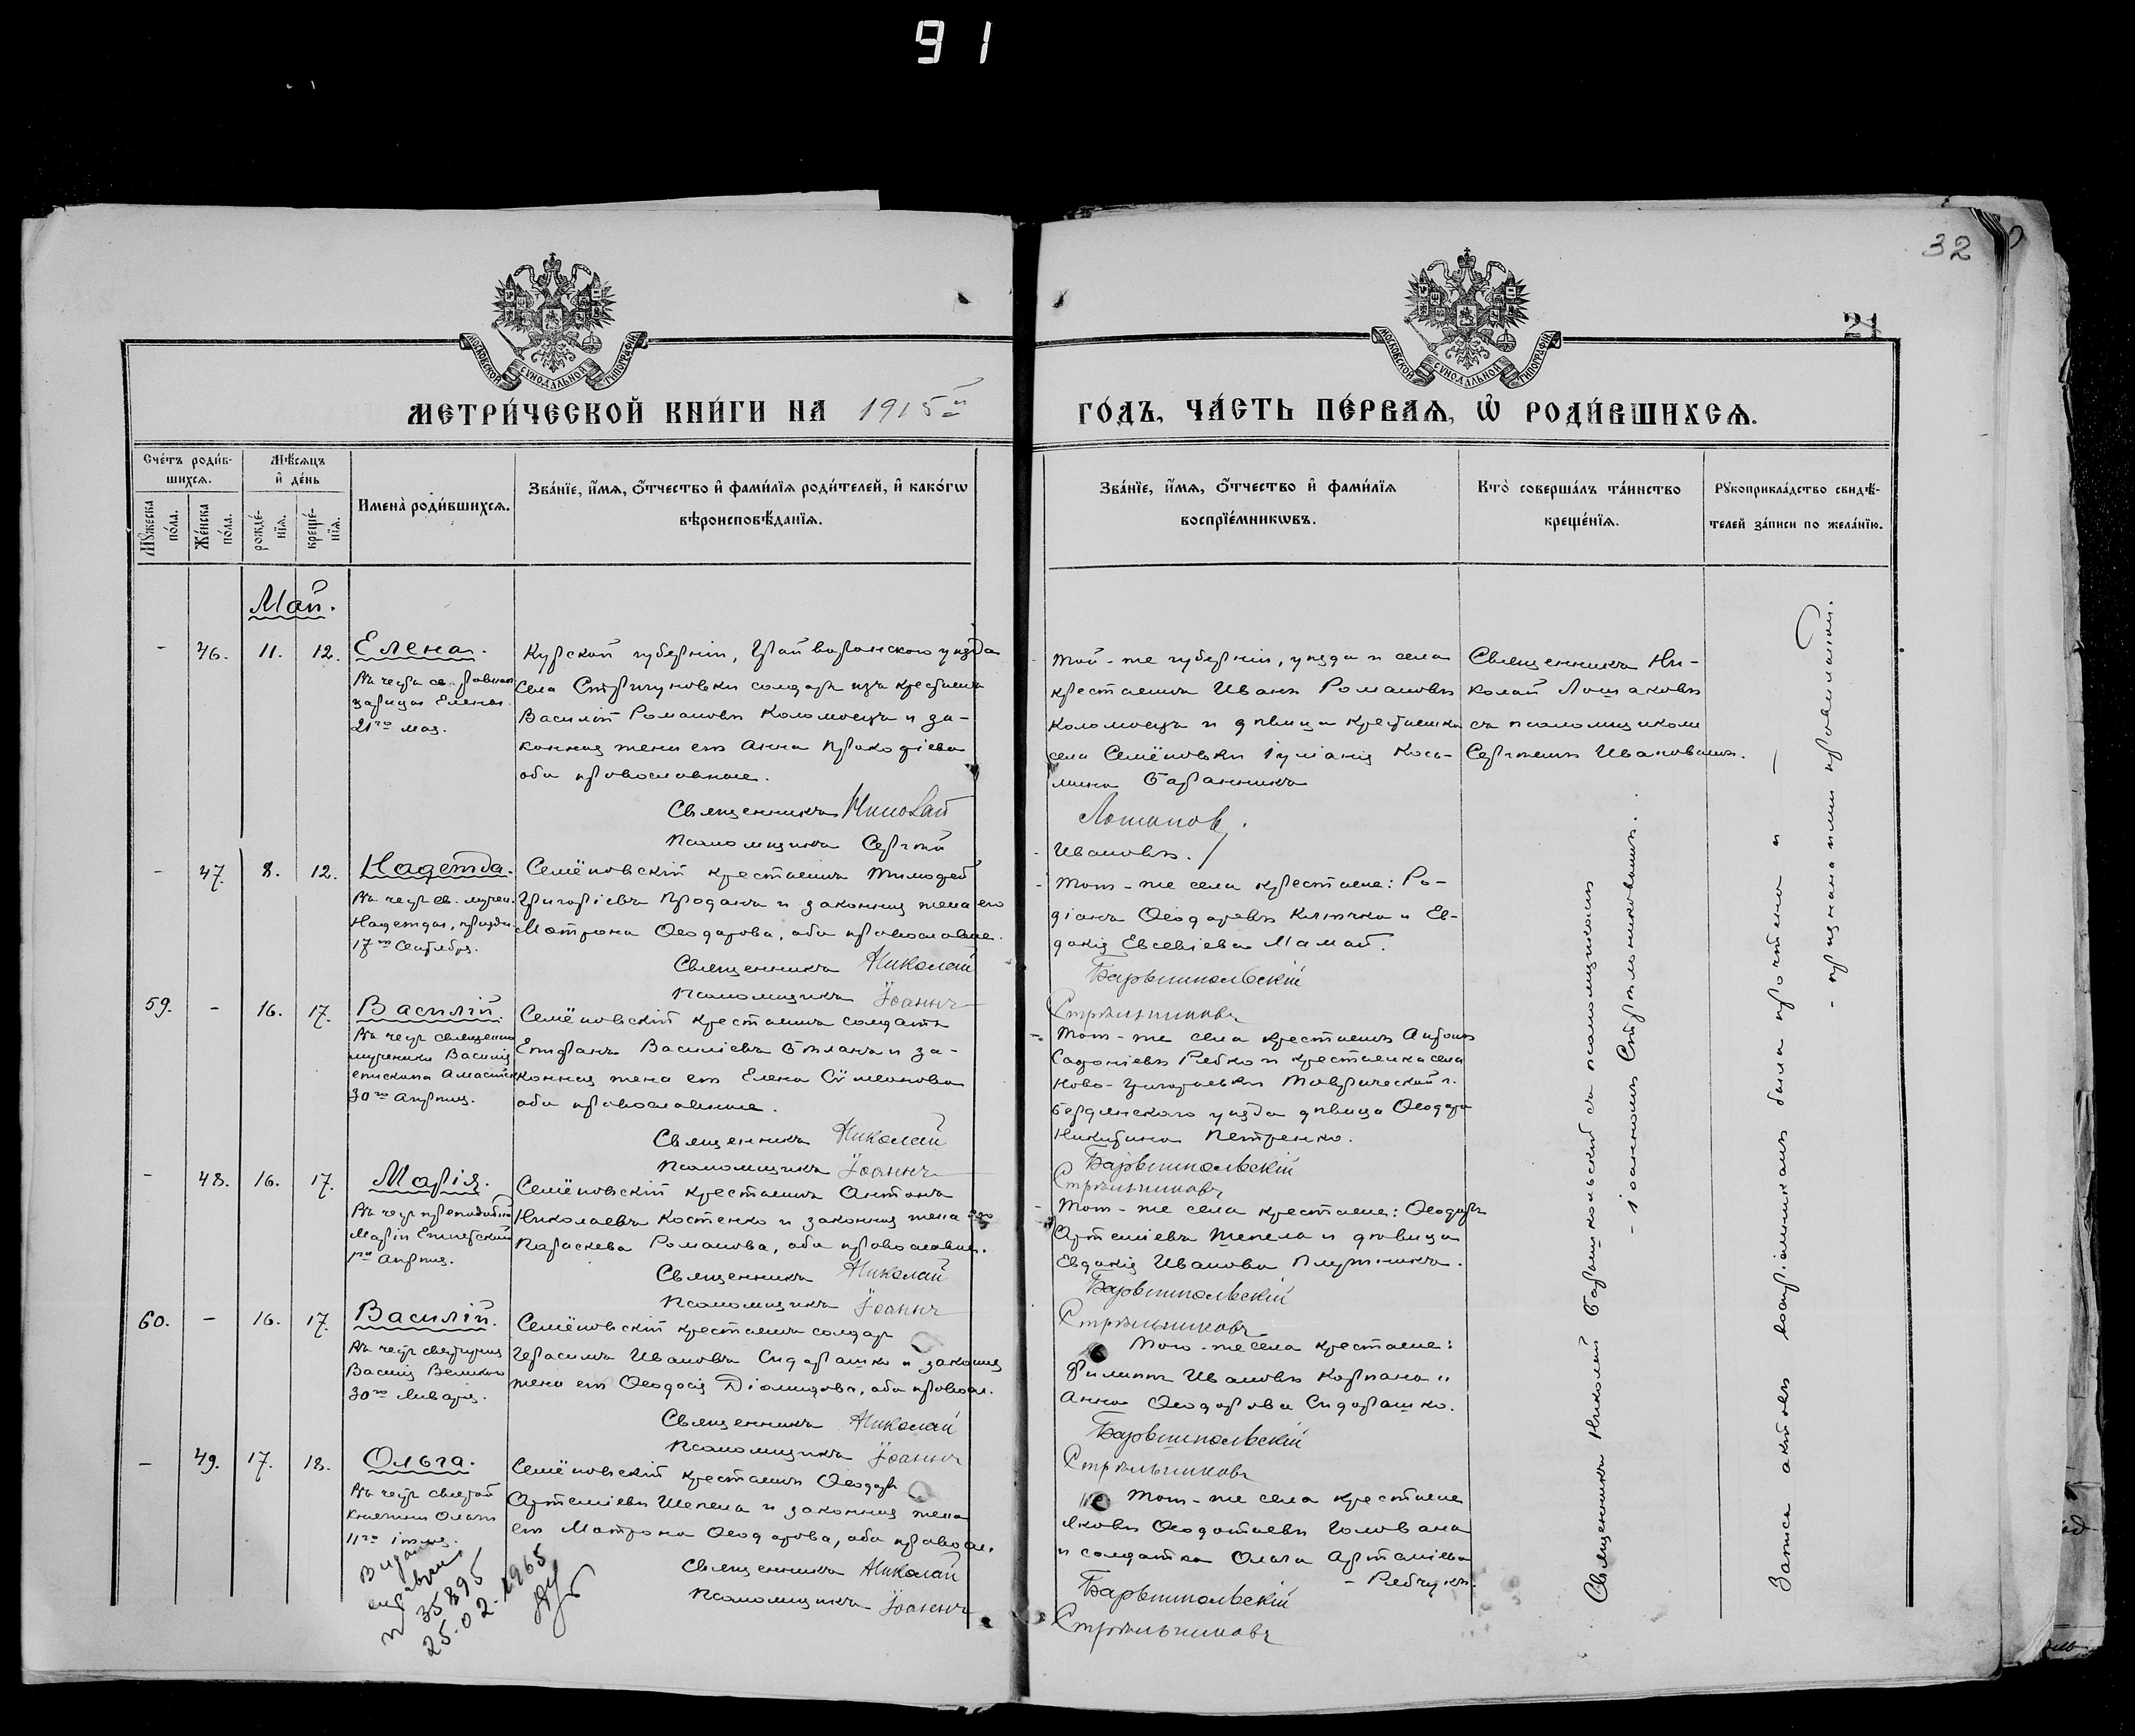 91
32
21
МОСКОВСКОЙ СѴНОДАЛЬНОЙ ТИПОГРАФІИ
МЕТРИ́ЧЕСКОЙ КНИ́ГИ НА 1915й
МОСКОВСКОЙ СѴНОДАЛЬНОЙ ТИПОГРАФІИ
ГО́ДЪ, ЧА́СТЬ ПЕ́РВАѦ, Ѡ҆ РОДИ́ВШИХСѦ.
Сче́тъ роди́в-
шихсѧ.
Мꙋжеска по́ла.
Же́нска по́ла.
Мѣ́сѧцъ
и҆ де́нь
рожде́-
нїѧ.
креще́-
нїѧ.
Имена̀ роди́вшихсѧ.
Зва́нїе, и҆́мѧ, ѻ҆́тчество и҆ фами́лїѧ роди́телей, и҆ како́гѡ
вѣроисповѣ́данїѧ.
Зва́нїе, и҆́мѧ, ѻ҆́тчество и҆ фами́лїѧ
воспрїе́мникѡвъ.
Кто̀ соверша́лъ та́инство
креще́нїѧ.
Рꙋкоприкла́дство свидѣ́-
телей за́писи по жела́нїю.
Май.
- 46. 11. 12. Елена.
Въ честь св. равноап.
царицы Елены
21го мая.
Курской губерніи, Грайворонского уѣзда
села солдатъ изъ крестьянъ
Василій Романовъ Коломоецъ и за-
конная жена его Анна
оба православные.
Священникъ Николай
Псаломщикъ Сергѣй
Той-же губерніи, уѣзда и села
крестьянинъ Иванъ Романовъ
Коломоецъ и дѣвица крестьянка
села Семёновки Іуліанія Кось-
мина Баранникъ
Лошаковъ.
Ивановъ.
Священникъ Ни-
колай Лошаковъ
съ псаломщикомъ
Сергѣемъ Ивановымъ.
- 47. 8. 12. Надежда.
Въ честь св. мучен.
Надежды, празд.
17го Сентября.
Семёновскій крестьянинъ Тимофей
Григоріевъ Проданъ и законная жена его
Матрона Ѳеодорова, оба православные.
Священникъ Николай
Псаломщикъ Іоаннъ
Того-же села крестьяне: Ро-
діонъ Ѳеодоровъ Клячко и Ев-
докія Евсевіева Мамай.
Барвинпольскій
Стрѣльниковъ
59. - 16. 17. Василій.
Въ честь священно
мученика Василія
епископа Амасійск.
30го Апрѣля.
Семёновскій крестьянинъ солдатъ
Василіевъ Биланъ и за-
конная жена его Елена Сѵмеонова
оба православные.
Священникъ Николай
Псаломщикъ Іоаннъ
Того-же села крестьянинъ Антонъ
Рябко и крестьянка села
Ново-Григорьевки Таврической г.
Бердянского уѣзда дѣвица Ѳеодора
Никитина Петренко.
Барвинпольскій
Стрѣльниковъ
- 48. 16. 17. Марія.
Въ честь преподобной
Маріи Египетской
1го Апрѣля.
Семёновскій крестьянинъ Антонъ
Николаевъ Костенко и законная жена его
Параскева Романова, оба православн.
Священникъ Николай
Псаломщикъ Іоаннъ
Того-же села крестьяне: Ѳеодоръ
Артеміевъ Шепель и дѣвица
Евдокія Иванова Плужникъ.
Барвинпольскій
Стрѣльниковъ
60. - 16. 17. Василій.
Въ честь святителя
Василія Великого
30го Января.
Семёновскій крестьянинъ солдатъ
Герасимъ Ивановъ Сидорашко и законная
жена его Ѳеодосія Діомидова, оба правосл.
Священникъ Николай
Псаломщикъ Іоаннъ
Того-же села крестьяне:
Филиппъ Ивановъ Корпань и
Анна Ѳеодорова Сидорашко.
Барвинпольскій
Стрѣльниковъ
- 49. 17. 18. Ольга.
Въ честь святой
Княгини Ольги
11го іюля.
Семёновскій крестьянинъ Ѳеодоръ
Артеміевъ Шепель и законная жена
его Матрона Ѳеодорова, оба правосл.
Священникъ Николай
Псаломщикъ Іоаннъ
Того-же села крестьяне
Яковъ Голована
и солдатка Ольга Артеміева
- Рябчукъ.
Барвинпольскій
Стрѣльниковъ
35895
25.02.1965
Священникъ Николай Барвинпольскій съ псаломщикомъ
- Іоанномъ Стрѣльниковымъ.
Запись актовъ воспріемникамъ была прочтена и -
- признана ими правильной.